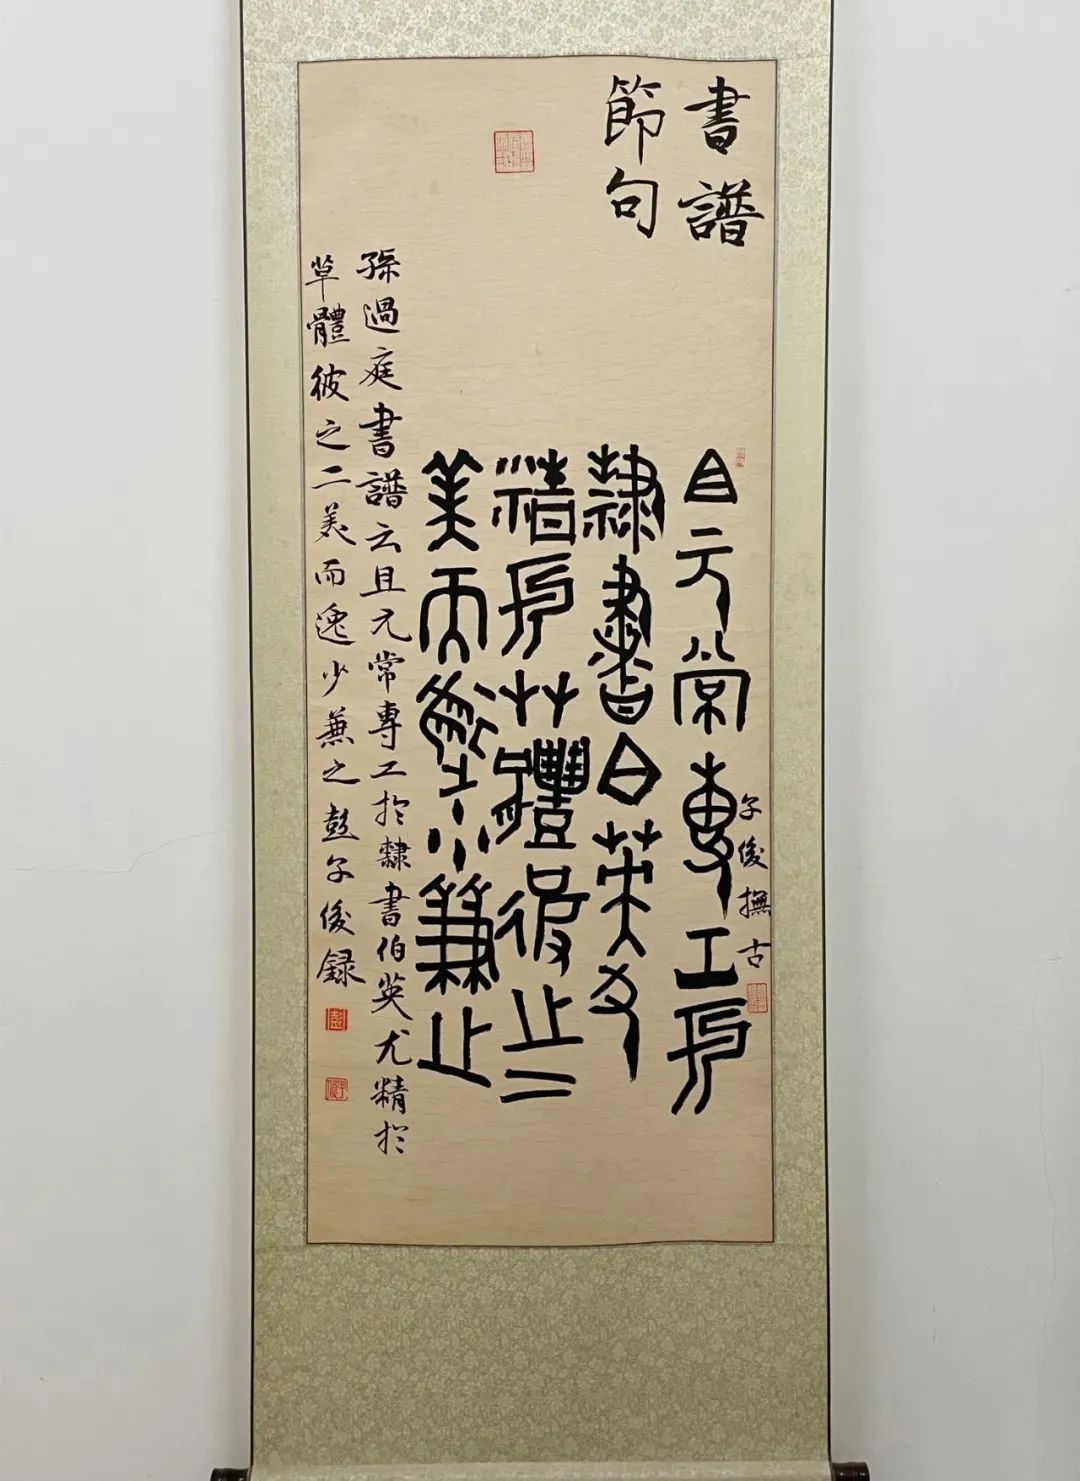 書譜
節句
且元常專工於
隸書白英尤
精於艸體彼之二
美而逸少兼之
子俊撫古
孫過庭書譜云且元常專工於隸書伯英尤精於
草體彼之二美而逸少兼之彭子俊録
彭